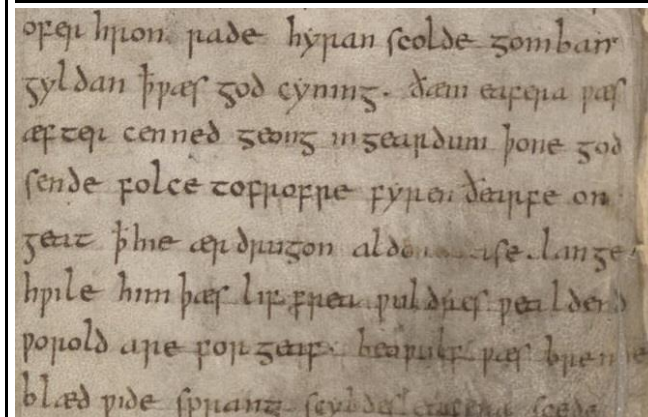 ofer hron rade hyran scolde gomban
gyldan þꝥ ƿæs god cyning. ðæm eafera ƿæs
æfter cenned geong in geardum þone god
sende folce tofrofre fyren ðearfe on
geat ꝥ hie ær drugon aldor ase. lange
hƿile him þæs lif frea ƿuldres ƿealdend
ƿorold are forgeaf. beoƿulf ƿæs breme
blæd ƿide sprang scyldes eafera